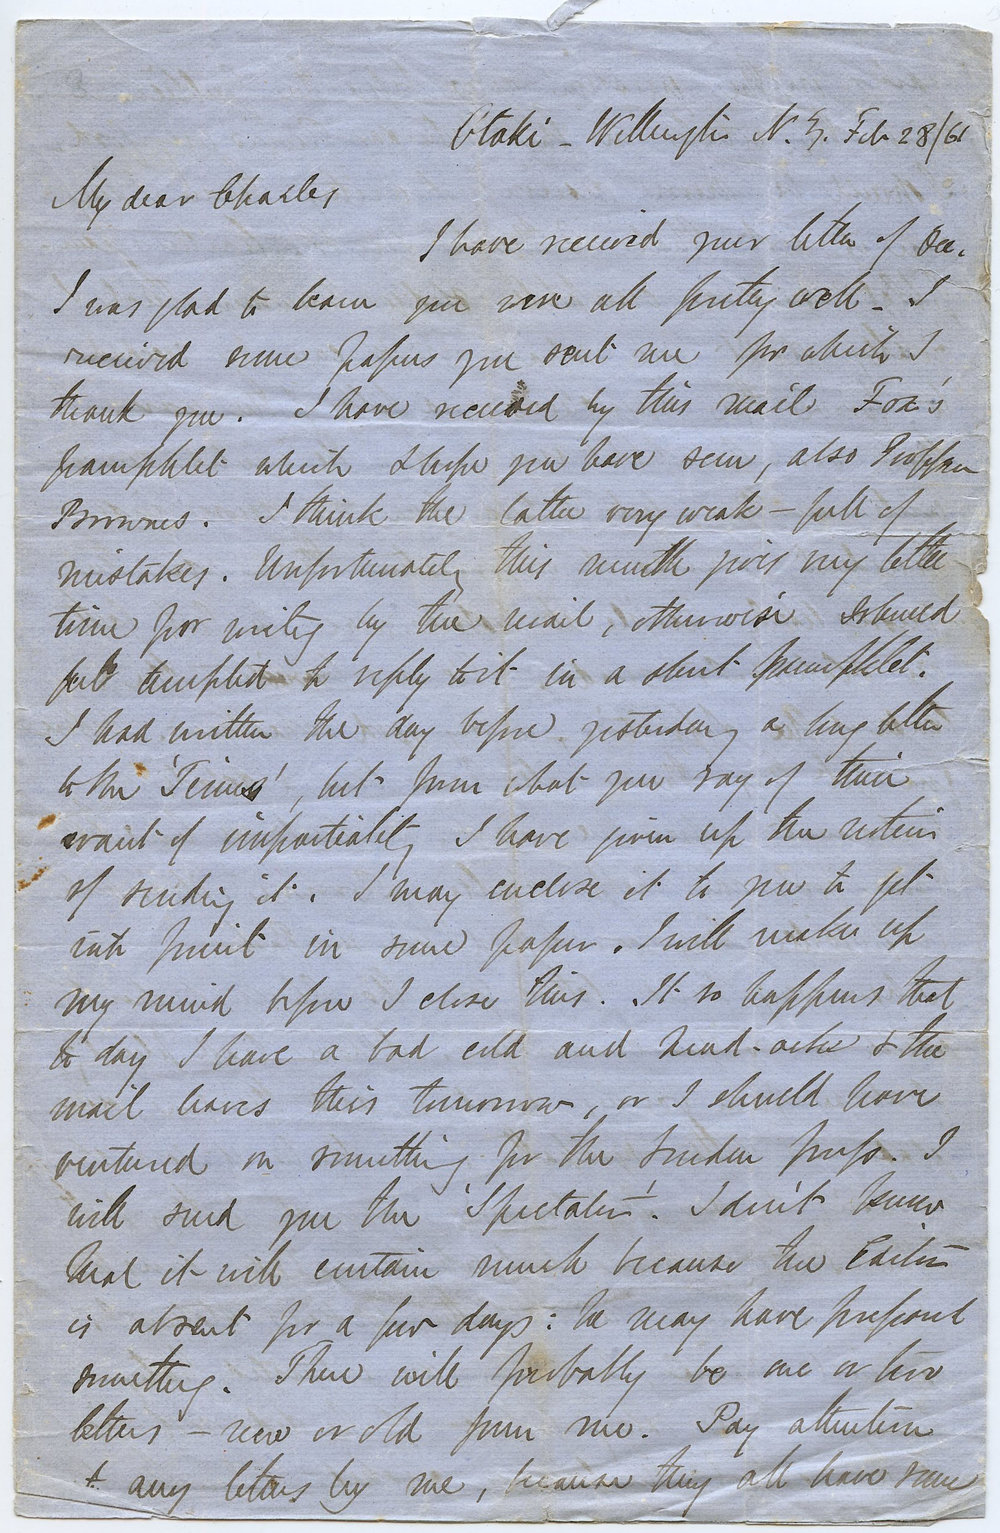 Otaki - Wellington N.Z. Feb 28/61
My dear Charles
I have received your letter of Dec.
I was glad to learn you were all pretty well - I
received some papers you sent me for which I
thank you. I have received by this mail Fox's
pamphlet which I hope you have seen, also
Brownes. I think the latter very weak - full of
mistakes. Unfortunately this month gives very little
time for writing by the mail, otherwise I should
feel tempted to reply to it in a short pamphlet.
I had written the day before yesterday a long letter
to the 'Times', but from what you say of their
want of impartiality I have given up the notion
of sending it. I may enclose it to you to get
into print in some paper. I will make up
my mind before I close this. It so happens that
to day I have a bad cold and head-ache & the
mail leaves this tomorrow, or I should have
ventured on something for the London press. I
will send you the 'Spectator'. I don't know
that it will contain much because the Editor
is absent for a few days: he may have prepared
something. There will probably be one or two
letters - new or old from me. Pay attention
to any letters by me, because they all have some